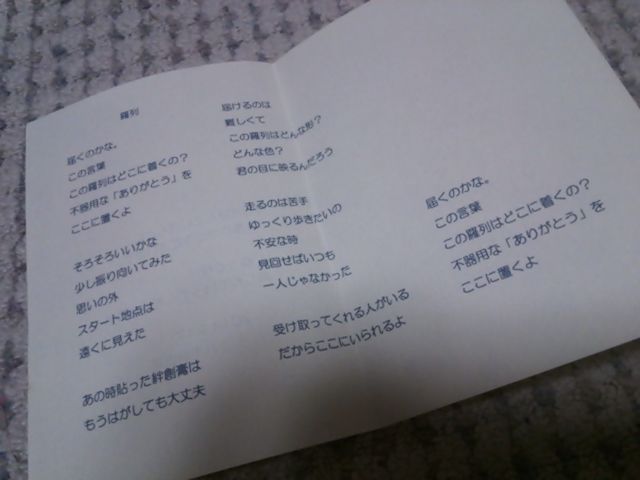 羅列
届くのかな。
この言葉
この羅列はどこに着くの？
不器用な「ありがとう」を
ここに置くよ
そろそろいいかな
少し振り向いてみた
思いの外
スタート地点は
遠くに見えた
あの時貼った絆創膏は
もうはがしても大丈夫
届けるのは
難しくて
この羅列はどんな形？
どんな色？
君の目に映るんだろう
走るのは苦手
ゆっくり歩きたいの
不安な時
見回せばいつも
一人じゃなかった
受け取ってくれる人がいる
だからここにいられるよ
届くのかな。
この言葉
この羅列はどこに着くの？
不器用な「ありがとう」を
ここに置くよ